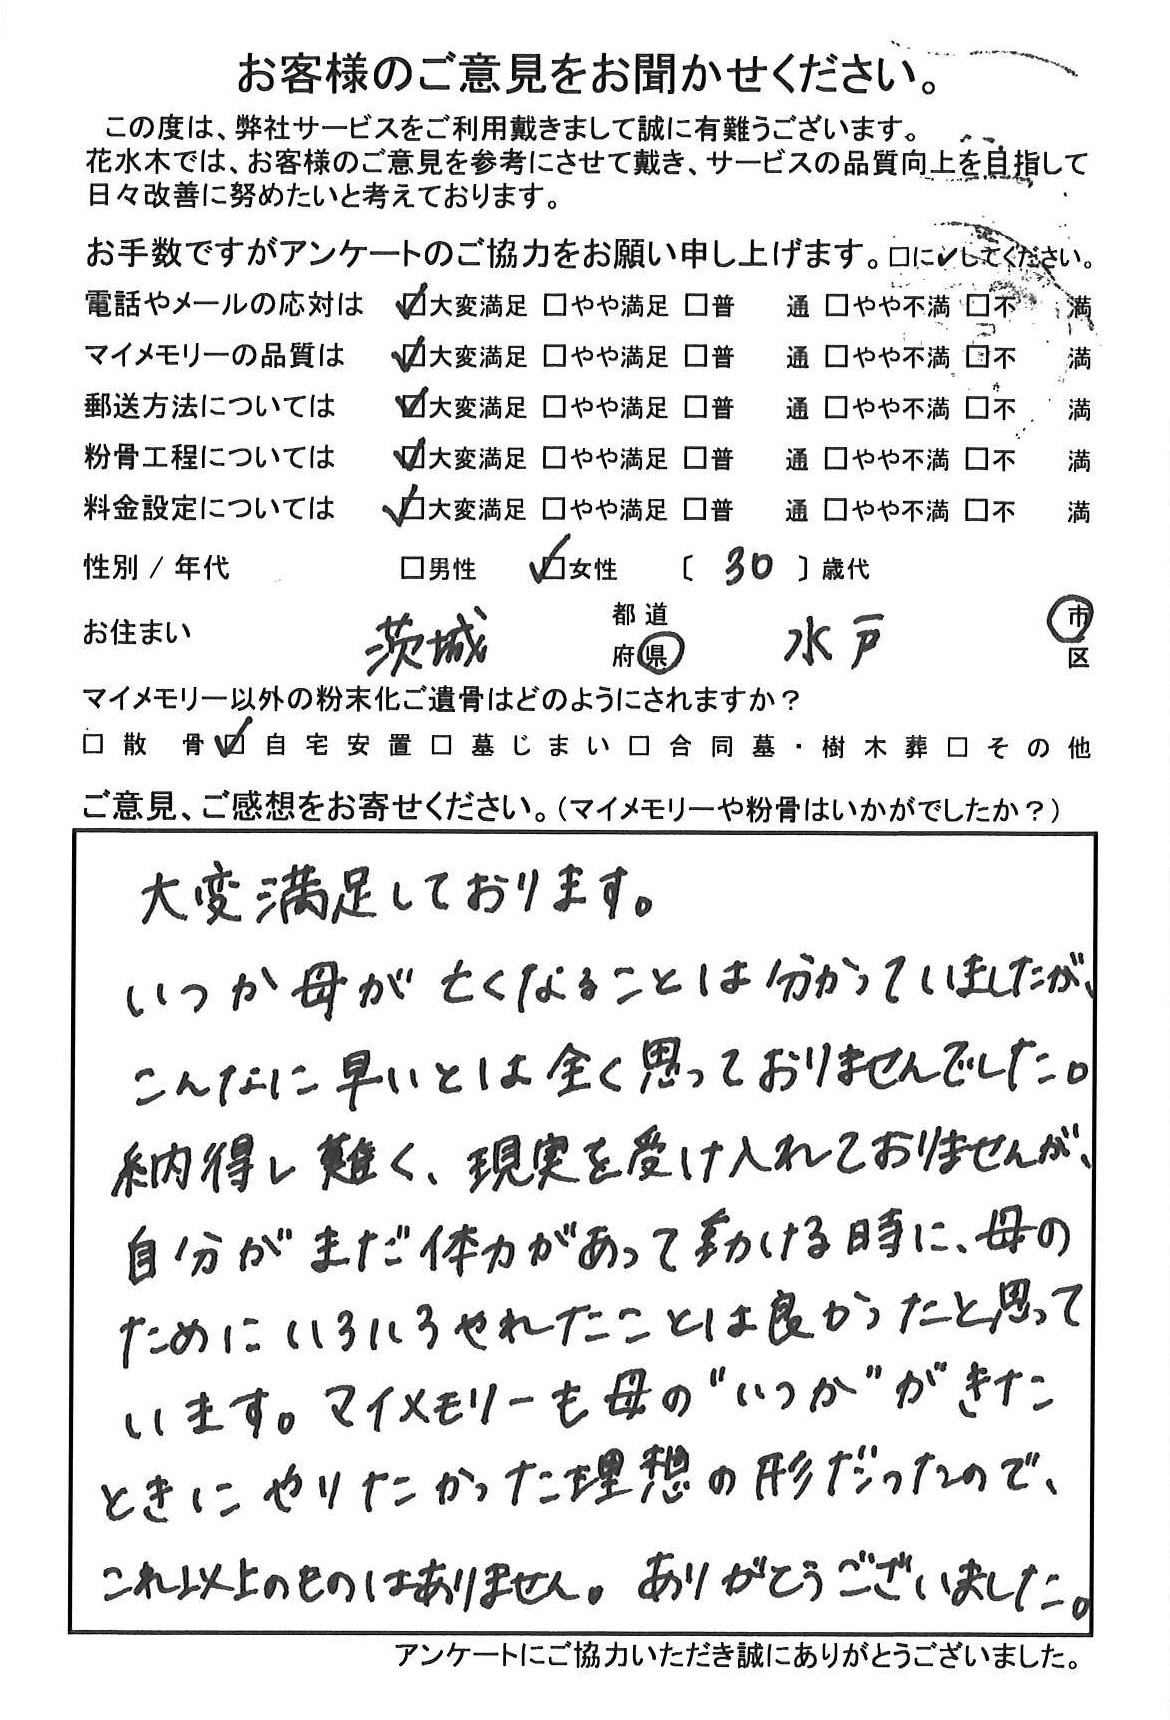 お客様のご意見をお聞かせください。
この度は、弊社サービスをご利用戴きまして誠に有難うございます。
花水木では、お客様のご意見を参考にさせて戴き、サービスの品質向上を目指して
日々改善に努めたいと考えております。
お手数ですがアンケートのご協力をお願い申し上げます。□に✓してください。
電話やメールの応対は ☑大変満足 □やや満足 □普 通 □やや不満 □不 満
マイメモリーの品質は ☑大変満足 □やや満足 □普 通 □やや不満 □不 満
郵送方法については ☑大変満足 □やや満足 □普 通 □やや不満 □不 満
粉骨工程については ☑大変満足 □やや満足 □普 通 □やや不満 □不 満
料金設定については ☑大変満足 □やや満足 □普 通 □やや不満 □不 満
性別 / 年代 □男性 ☑女性 〔 30 〕歳代
お住まい 茨城 都道府県 水戸 市区
マイメモリー以外の粉末化ご遺骨はどのようにされますか?
□ 散 骨 ☑ 自宅安置 □ 墓じまい □ 合同墓・樹木葬 □ その他
ご意見、ご感想をお寄せください。(マイメモリーや粉骨はいかがでしたか?)
大変満足しております。
いつか母が亡くなることは分かっていましたが、
こんなに早いとは全く思っておりませんでした。
納得し難く、現実を受け入れておりませんが、
自分がまだ体力があって動ける時に、母の
ためにいろいろやれたことは良かったと思って
います。マイメモリーも母の"いつか"がきた
ときにやりたかった理想の形だったので、
これ以上のものはありません。ありがとうございました。
アンケートにご協力いただき誠にありがとうございました。